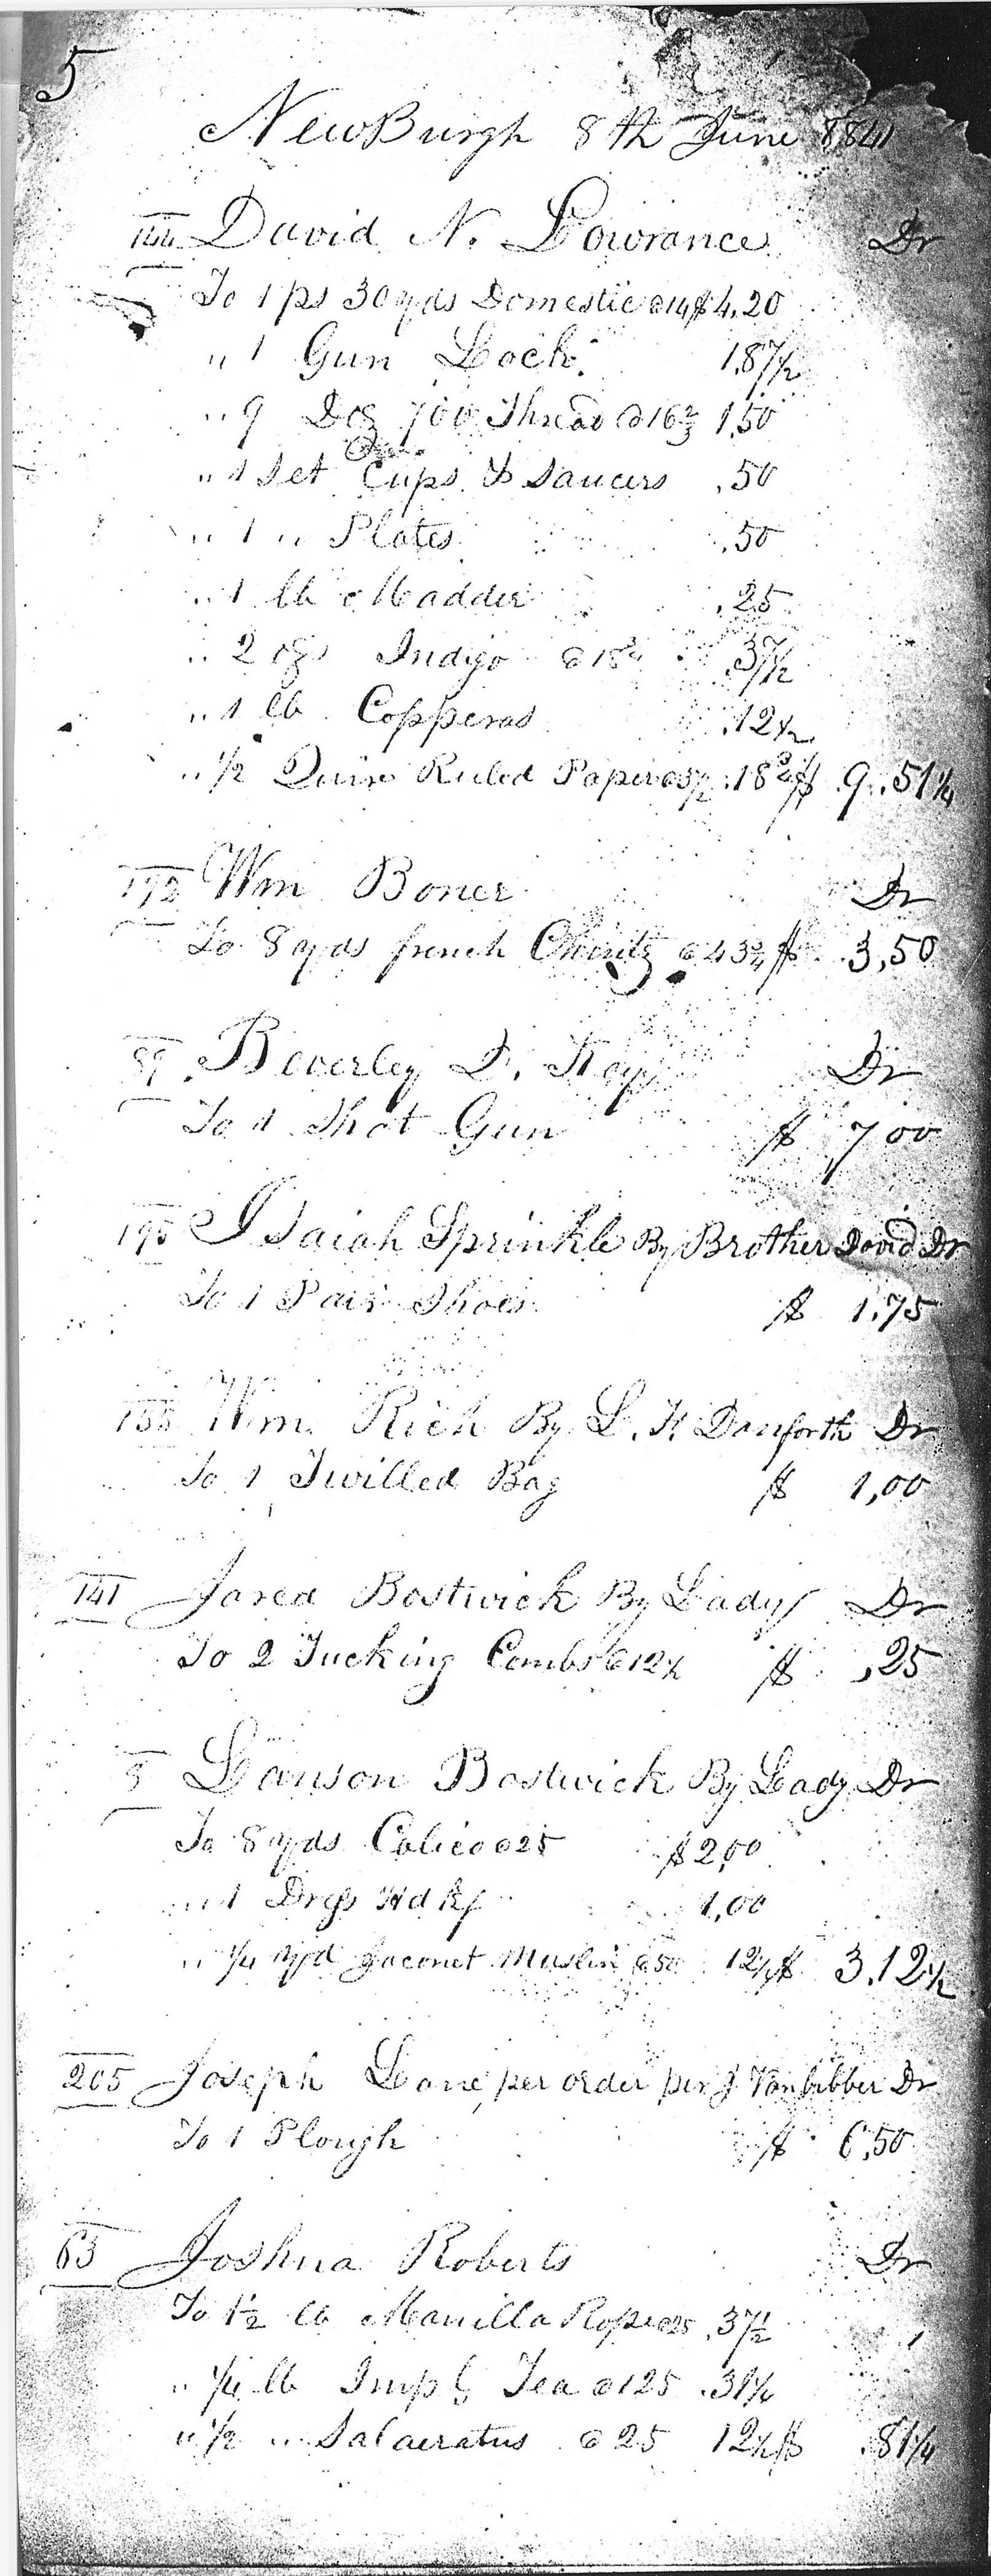 5
NewBurgh 8th June
144 David N. Lowrance Dr
To 1 ps 30 yds Domestic @14 $4.20
" 1 Gun Lock 1.87½
" 9 Doz 700 Thread @16⅔ 1.50
" 1 Set Cups & Saucers .50
" 1 " Plates .50
" 1 lb Madder .25
" 2 ozs Indigo @18¾ .37½
" 1 lb Copperas .12½
" ½ Quire Ruled Paper .18¾ $ 9.51¼
192 Wm Boner Dr
To 8 yds french Chintz @43¾ $ 3,50
89 Beverley D. Dr
To 1 Shot Gun $ 7 00
195 Isaiah Sprinkle By Brother David Dr
To 1 Pair Shoes $ 1.75
155 Wm Rich By L. H. Danforth Dr
To 1 Twilled Bag $ 1,00
141 Jared Bostwick By Lady Dr
To 2 Tucking Combs @12½ $ ,25
Lanson Bostwick By Lady Dr
To 8 yds Calico @25 $2,00
" 1 Dress Hdkf 1,00
" ¼ Yd Jaconet Muslin @50 12½ $ 3.12½
205 Joseph Lane per order per J Vanbibber Dr
To 1 Plough $ 6,50
63 Joshua Roberts Dr
To 1½ lb Manilla Rope @25 .37½
" ¼ lb Impl Tea @125 .31¼
" ½ " Salaeratus @25 12½ $ .81¼